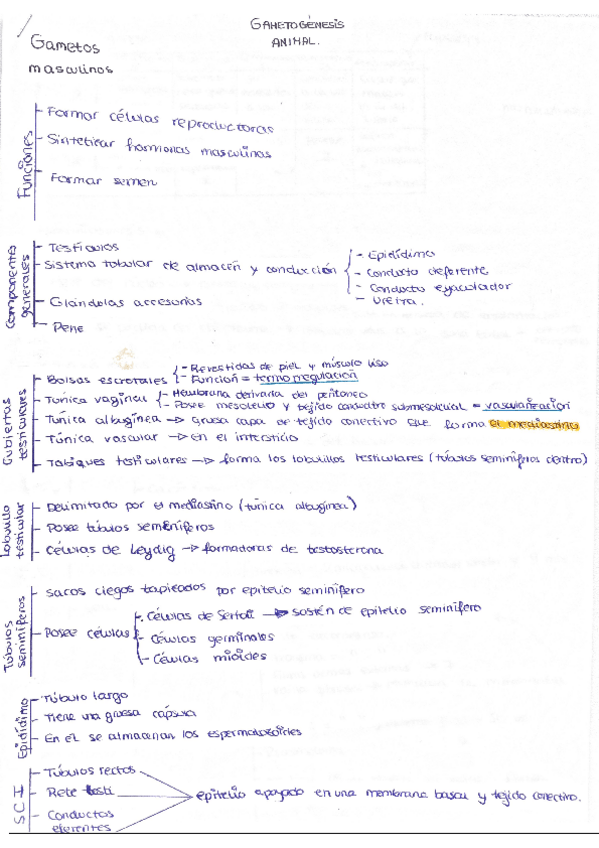 GAMETOGÉNESIS
ANIMAL.
Gametos
masculinos
Funciones
Formar células reproductoras
Sintetizar hormonas masculinas
Formar semen
Componentes
generales
Testículos
Sistema tubular de almacén y conducción
- Epidídimo
- Conducto deferente
- Conducto eyaculador
- Uretra.
Glándulas accesorias
Pene
Cubiertas
testiculares
Bolsas escrotales
- Revestidas de piel y músculo liso
- Función = termorregulación
Túnica vaginal
- Membrana derivada del peritoneo
- Posee mesotelio y tejido conectivo submesotelial = vascularización
Túnica albugínea → gruesa capa de tejido conectivo que forma el mediastino
Túnica vascular → en el intersticio
Tabiques testiculares → forma los lobulillos testiculares (túbulos seminíferos dentro)
Lobulillo
testicular
Delimitado por el mediastino (túnica albugínea)
Posee túbulos seminíferos
Células de Leydig → formadoras de testosterona
Túbulos
seminíferos
Sacos ciegos tapizados por epitelio seminífero
Posee células
- Células de Sertoli → sostén de epitelio seminífero
- Células germinales
- Células mioides
Epidídimo
Túbulo largo
Tiene una gruesa cápsula
En el se almacenan los espermatozoides
SCI
Túbulos rectos
Rete testi
Conductos
eferentes
epitelio apoyado en una membrana basal y tejido conectivo.